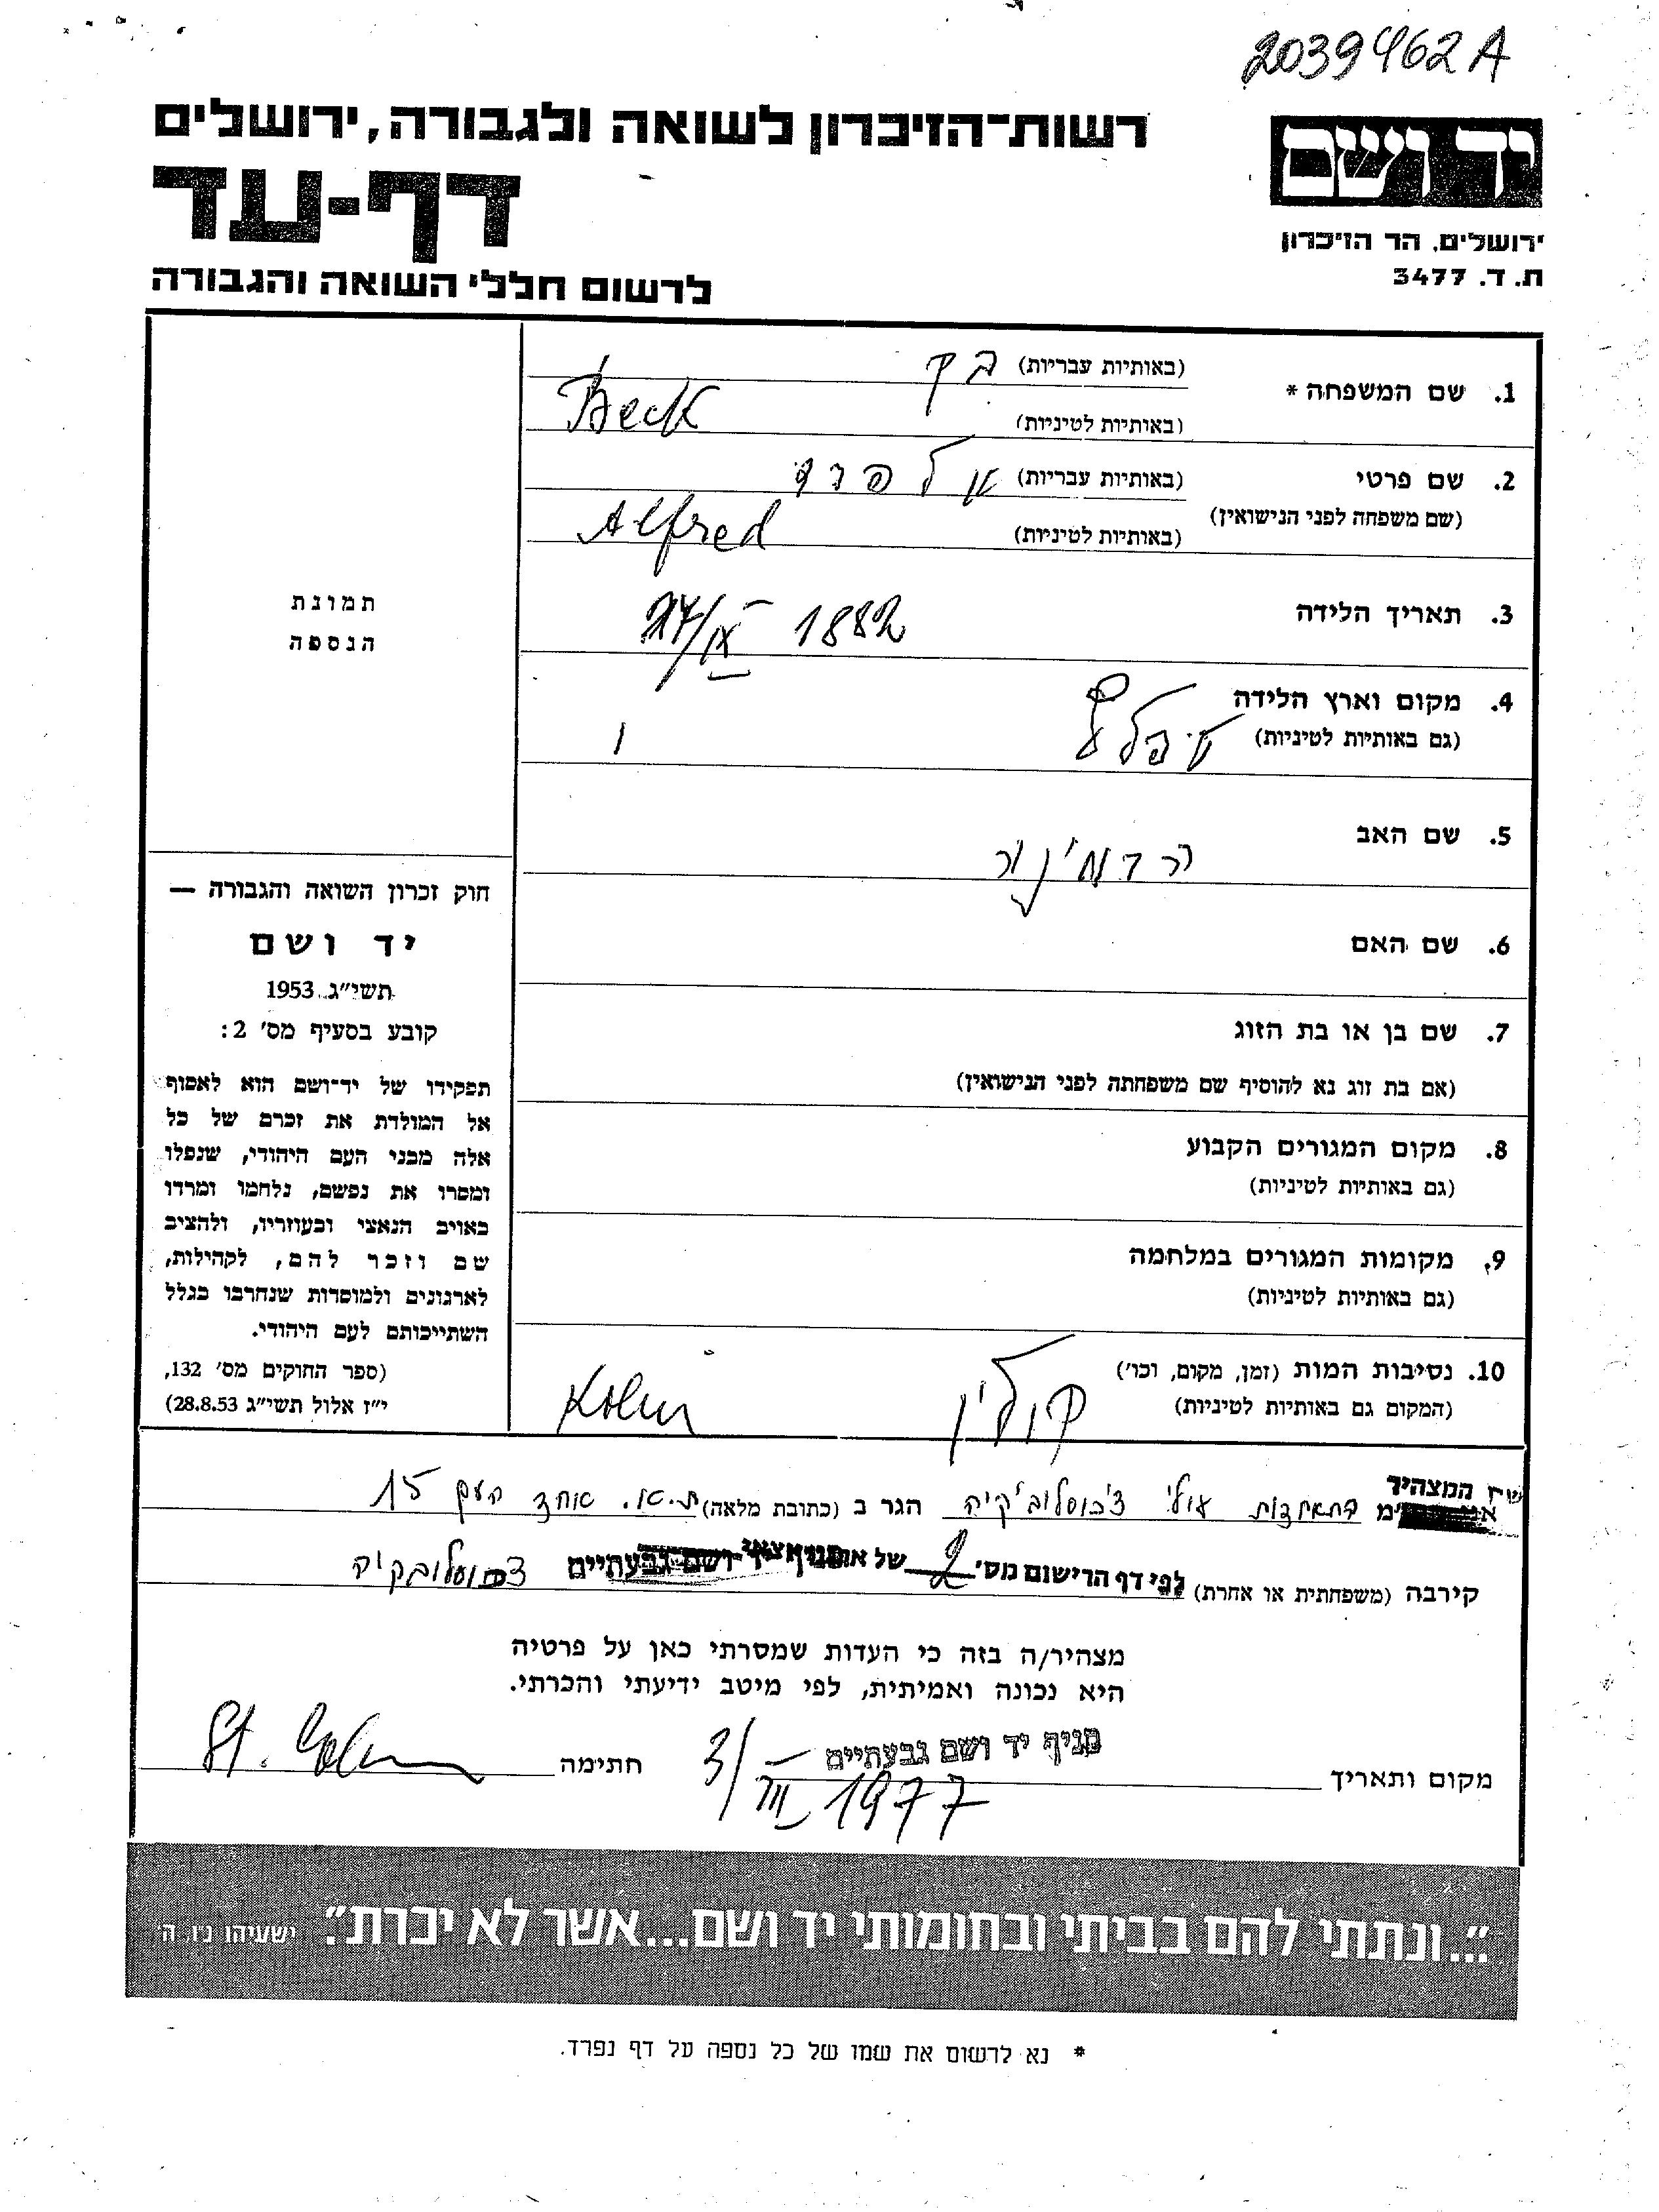 2039462A
רשות־הזיכרון לשואה ולגבורה, ירושלים
יד ושם
דף-עד
ירושלים, הר הזיכרון
ת. ד. 3477
לרשום חללי השואה והגבורה
1. שם המשפחה * (באותיות עבריות) בק
(באותיות לטיניות) Beck
2. שם פרטי (באותיות עבריות) אלפרד
(שם משפחה לפני הנישואין) (באותיות לטיניות) Alfred
3. תאריך הלידה 27/IX 1882
4. מקום וארץ הלידה
(גם באותיות לטיניות)
5. שם האב
6. שם האם
7. שם בן או בת הזוג
(אם בת זוג נא להוסיף שם משפחתה לפני הנישואין)
8. מקום המגורים הקבוע
(גם באותיות לטיניות)
9. מקומות המגורים במלחמה
(גם באותיות לטיניות)
10. נסיבות המות (זמן, מקום, וכו') קולין
(המקום גם באותיות לטיניות) Kolin
תמונת
הנספה
חוק זכרון השואה והגבורה —
יד ושם
תשי"ג 1953
קובע בסעיף מס' 2:
תפקידו של יד־ושם הוא לאסוף
אל המולדת את זכרם של כל
אלה מבני העם היהודי, שנפלו
ומסרו את נפשם, נלחמו ומרדו
באויב הנאצי ובעוזריו, ולהציב
שם וזכר להם, לקהילות,
לארגונים ולמוסדות שנחרבו בגלל
השתייכותם לעם היהודי.
(ספר החוקים מס' 132,
י"ז אלול תשי"ג 28.8.53)
המצהיר
התאחדות עולי צ'כוסלובקיה הגר ב (כתובת מלאה) ת.א. אחד העם 15
קירבה (משפחתית או אחרת) לפי דף הרישום מס' 2 של ושם גבעתיים צכוסלובקיה
מצהיר/ה בזה כי העדות שמסרתי כאן על פרטיה
היא נכונה ואמיתית, לפי מיטב ידיעתי והכרתי.
מקום ותאריך סניף יד ושם גבעתיים 3/III 1977 חתימה
"...ונתתי להם בביתי ובחומותי יד ושם...אשר לא יכרת". ישעיהו נ"ו, ה'
* נא לרשום את שמו של כל נספה על דף נפרד.